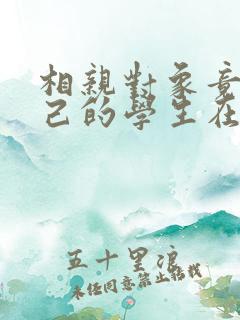 相親對象竟
己的學生在
五十里浪
未經同意禁止搭栈